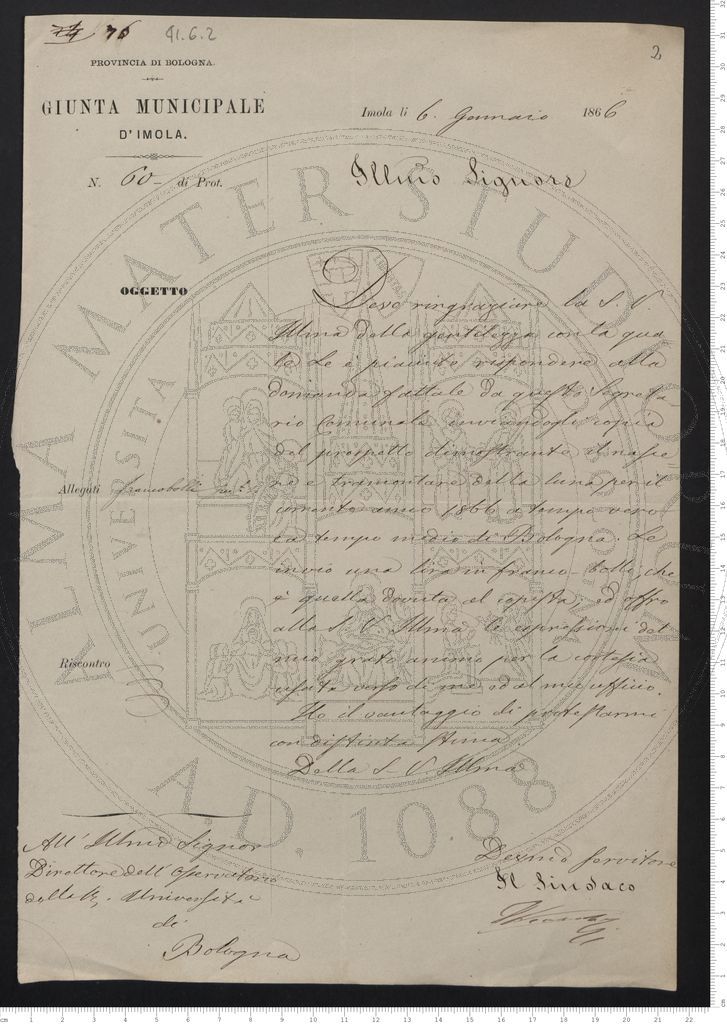 76 41.6.2
2
PROVINCIA DI BOLOGNA.
GIUNTA MUNICIPALE
D'IMOLA.
Imola li 6. Gennaio 1866
N. 60 di Prot.
Illmo Signore
OGGETTO
Devo ringraziare la S. V.
Illma della gentilezza con la qua-
le Le è piaciuto rispondere alla
domanda fattale da questo Segreta-
rio Comunale inviandogli copia
del prospetto dimostrante il nasce-
re e tramontare della luna per il
corrente anno 1866 a tempo vero
e a tempo medio di Bologna. Le
invio una lira in franco-bolli, che
è quella dovuta al copista, ed offro
alla S. V. Illma le espressioni del
mio grato animo per la cortesia
usata verso di me ed al mio ufficio.
Ho il vantaggio di protestarmi
con distinta stima
Della S. V. Illma
Allegati francobolli
Riscontro
All' Illmo Signor
Direttore dell' Osservatorio
della R. Università
di
Bologna
Devmo servitore
Il Sindaco
ALMA MATER STUDIORUM
UNIVERSITA
A.D. 1088